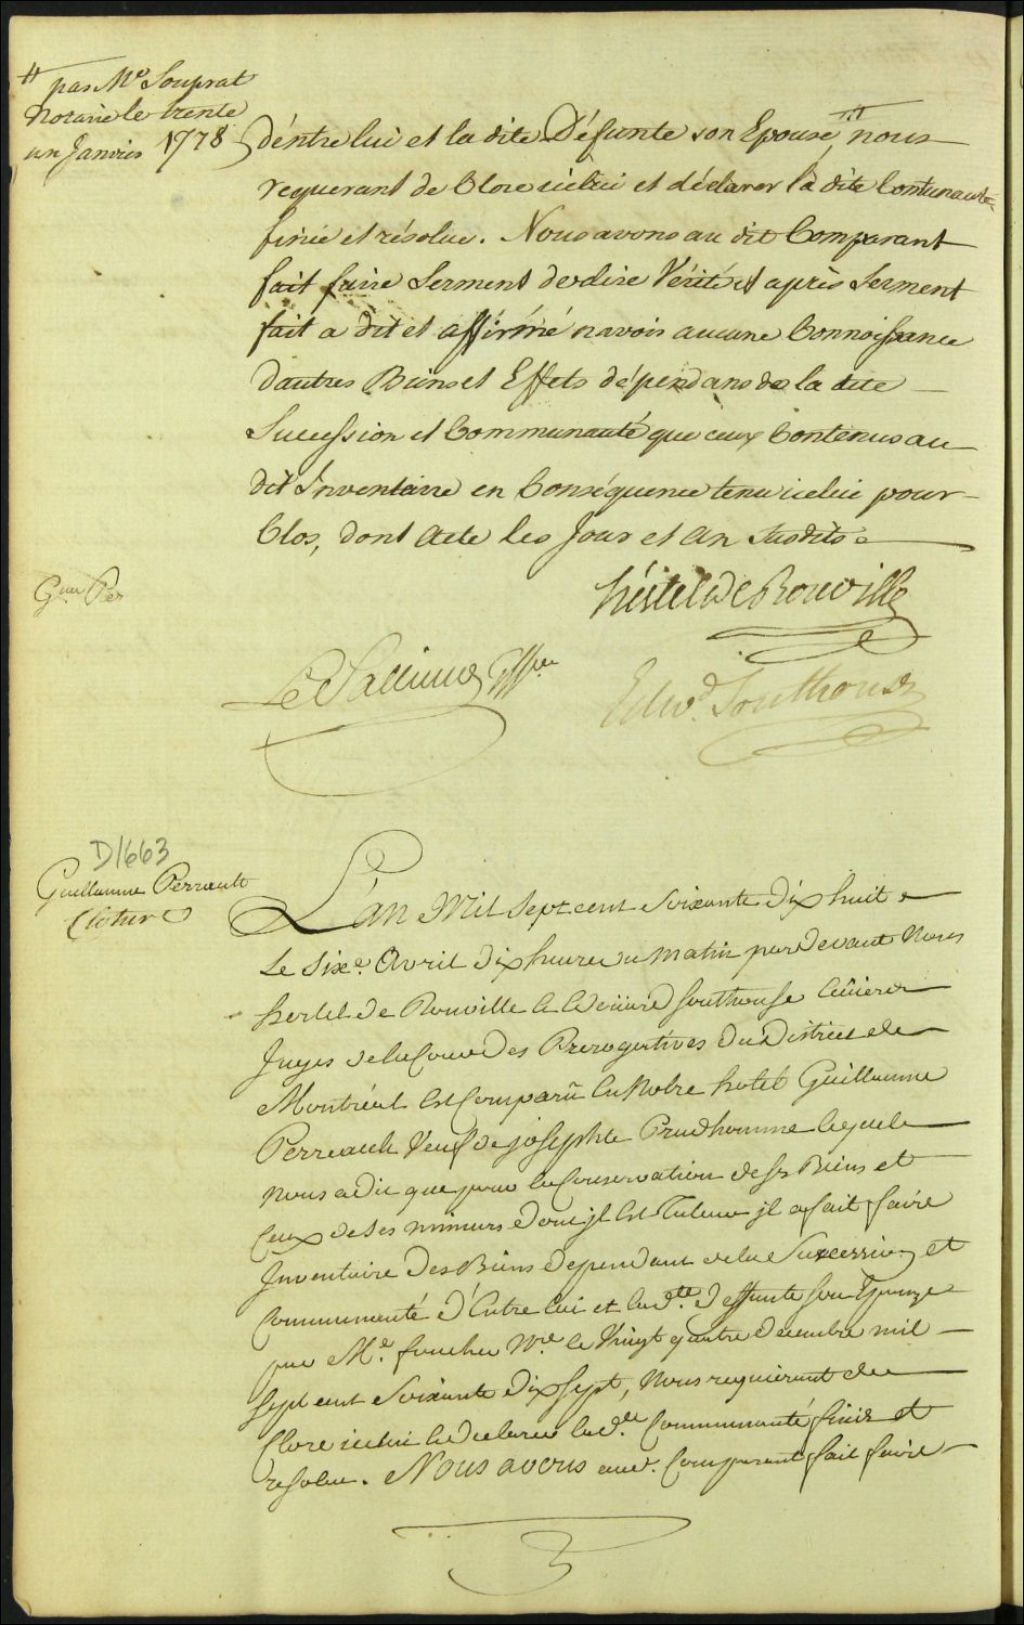 # par Me Souprat
Notaire le trente
un Janvier 1778
d'entre lui et la dite Défunte son Epouse # nous
requerant de Clore icelui et déclarer la dite Comunauté
finie et résolue. Nous avons au dit Comparant
fait faire Serment de dire Vérité et après Serment
fait a dit et affirmé n'avoir aucune Connoissance
d'autres Biens et Effets dépendans de la dite
Succession et Communauté que ceux Contenus au
dit Inventaire en Conséquence tenu icelui pour
Clos, dont Acte les Jour et An Susdits
Gme Per
hertel De Rouville
Edwd. Southouse
D1663
Guillaume Perrault
Cloture
L'an Mil Sept cent Soixante Dix huit
Le Sixe. Avril dix heures du matin pardevant Nous
hertel De Rouville et Edouard Southouse Ecuiers
Juges de la Cour des Prerogatives du District de
Montréal Est Comparû En Notre hotel Guillaume
Perreault Veuf de josephte Prudhomme lequel
nous a dit que pour la Conservation de ses Biens et
Ceux de ses mineurs dont jl Est Tuteur jl a fait faire
Inventaire Des Biens Dependant de la Succession et
Communauté d'Entre lui et la dte. Deffunte son Epouze
par Me. foucher Nre. le Vingt quatre decembre mil
Sept cent Soixante dix Sept, Nous requierant de
Clore icelui et declarer lade. Communauté finie et
resolue. Nous avons aud. Comparant fait faire